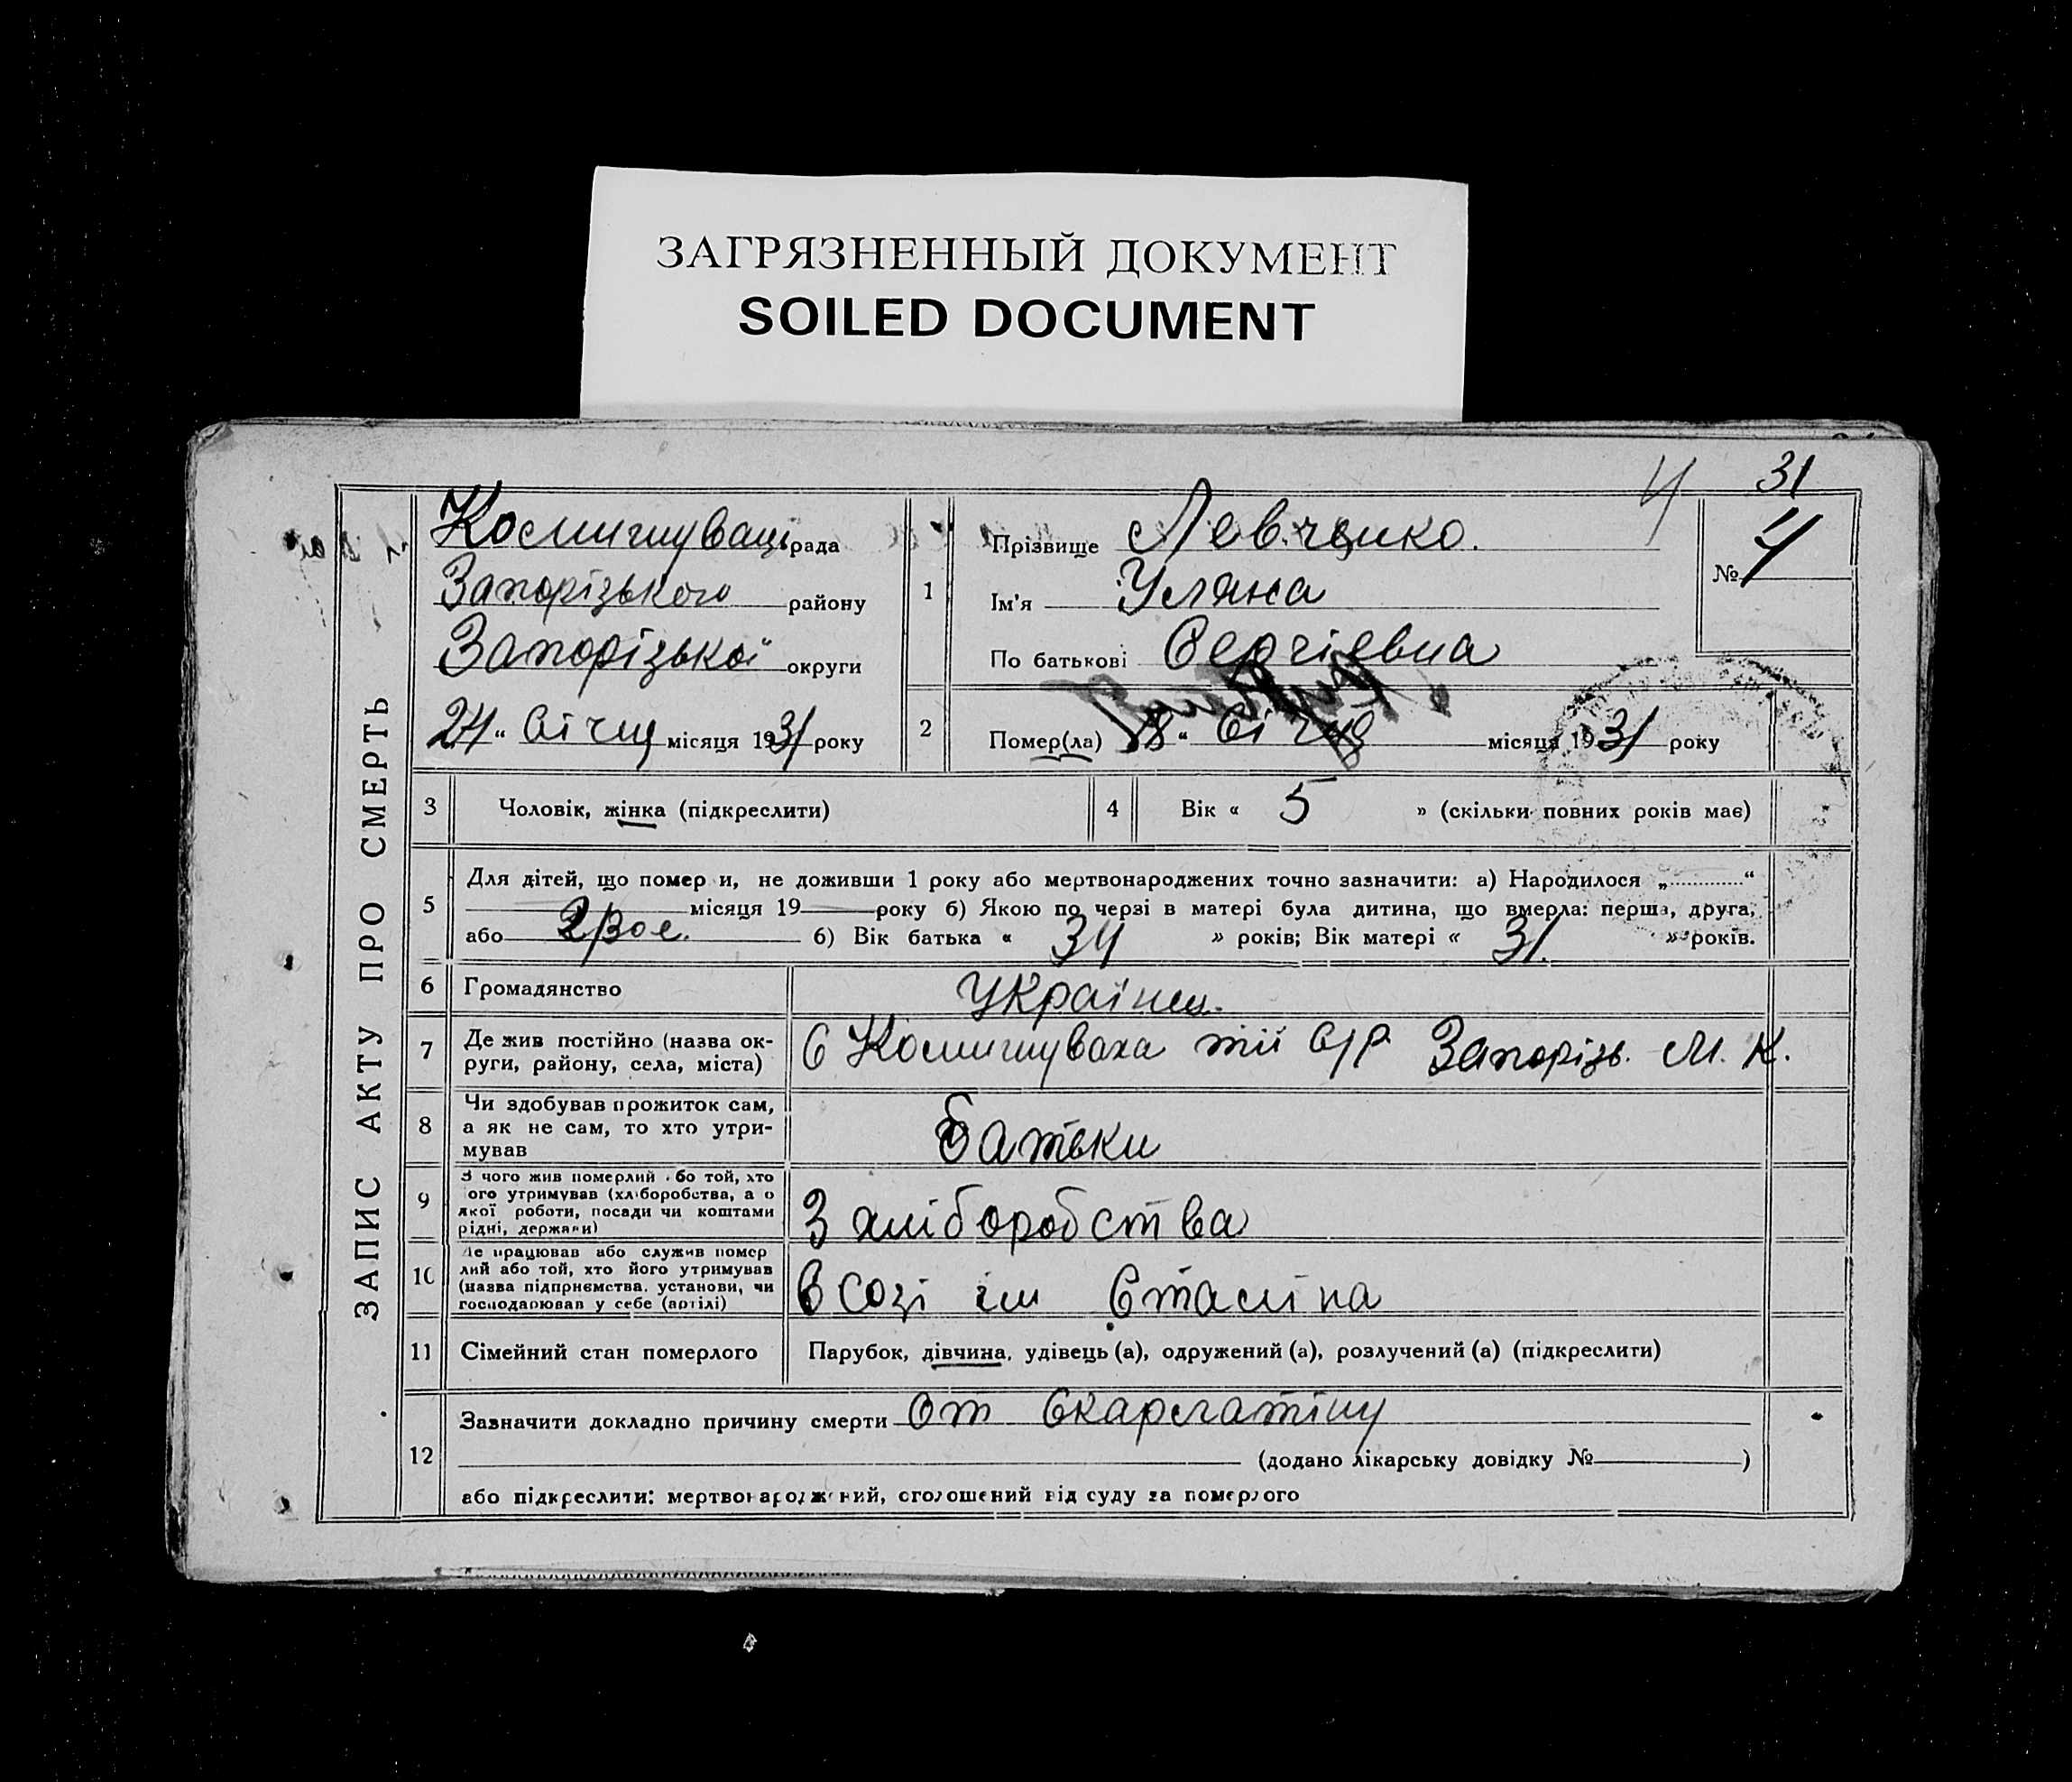 ЗАГРЯЗНЕННЫЙ ДОКУМЕНТ
SOILED DOCUMENT
31
4
ЗАПИС АКТУ ПРО СМЕРТЬ
Комишуваці рада
Запорізького району
Запорізької округи
24 “ Січня місяця 1931 року
1
Прізвище Левченко.
Ім'я Уляна
По батькові Сергіевна
№ 4
2
Помер(ла) 18 “ Січня місяця 1931 року
3 Чоловік, жінка (підкреслити)
4 Вік « 5 » (скільки повних років має)
5
Для дітей, що помер и, не доживши 1 року або мертвонароджених точно зазначити: а) Народилося „ “
місяця 19 року б) Якою по черзі в матері була дитина, що вмерла: перша, друга,
або б) Вік батька « 34 » років; Вік матері « 31. » років.
6 Громадянство Україн
7 Де жив постійно (назва ок-
руги, району, села, міста)
С Комишуваха тії С/Р Запорізь. М. К.
8 Чи здобував прожиток сам,
а як не сам, то хто утри-
мував
Батьки
9 З чого жив померлий або той, хто
ого утримував (хліборобства, а о
якої роботи, посади чи коштами
рідні, держави)
З хліборобства
10 Де працював або служив помер
лий або той, хто його утримував
(назва підприємства, установи, чи
господарював у себе (артілі)
В Созі ім Сталіна
11 Сімейний стан померлого Парубок, дівчина, удівець (а), одружений (а), розлучений (а) (підкреслити)
12
Зазначити докладно причину смерти От Скарлатіну
(додано лікарську довідку № )
або підкреслити: мертвонароджений, оголошений від суду за померлого